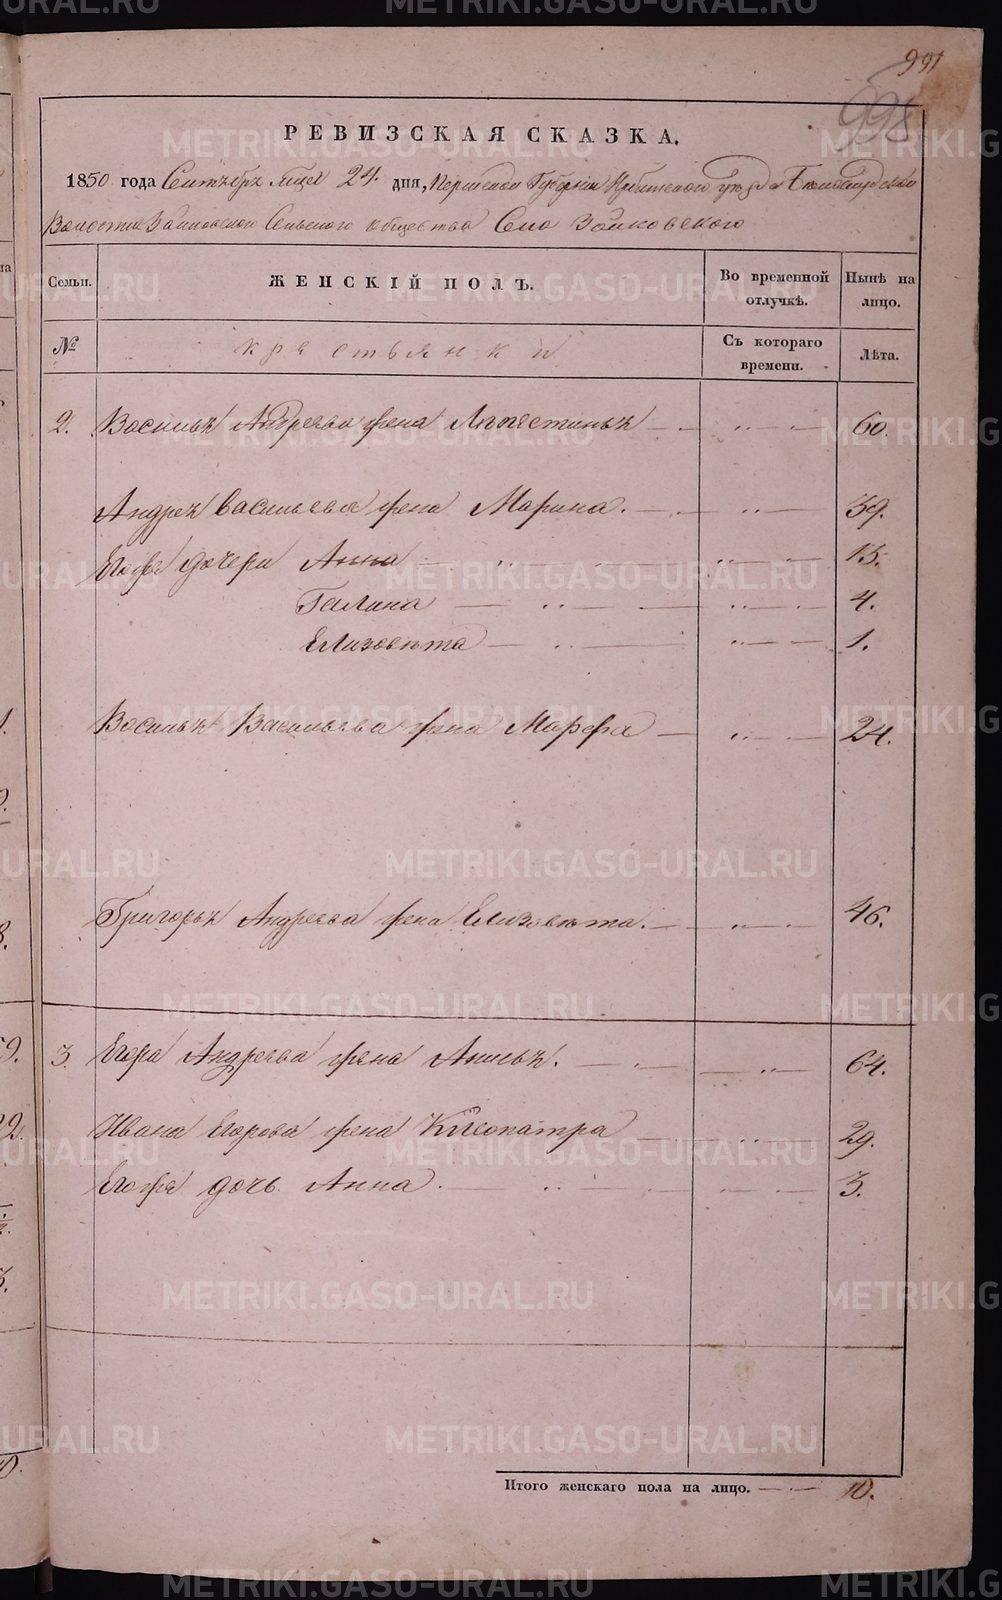 991
998
РЕВИЗСКАЯ СКАЗКА.
1850 года Сентябръ мцсе 24. дня, Пермской Губернiи Ирбитскаго уезда
Волости Зайковскаго Сельскаго общества Села Зайковского
Семьи. ЖЕНСКІЙ ПОЛЪ. Во временной отлучкѣ. Нынѣ на лицо.
№ крестьянки Съ котораго времени. Лѣта.
2. Василья Андреева жена 60.
Андрея Васильева жена Марина. 39.
Егоже дочери Анна 15.
Галина 4.
Елизовета 1.
Василья Васильева жена Марфа 24.
Григорья Андреева жена Елизовета. 46.
3. Егора Андреева жена 64.
Ивана Егорова жена Клеопатра 29.
Егоже дочь Анна. 3.
Итого женскаго пола на лицо. 10.
METRIKI.GASO-URAL.RU